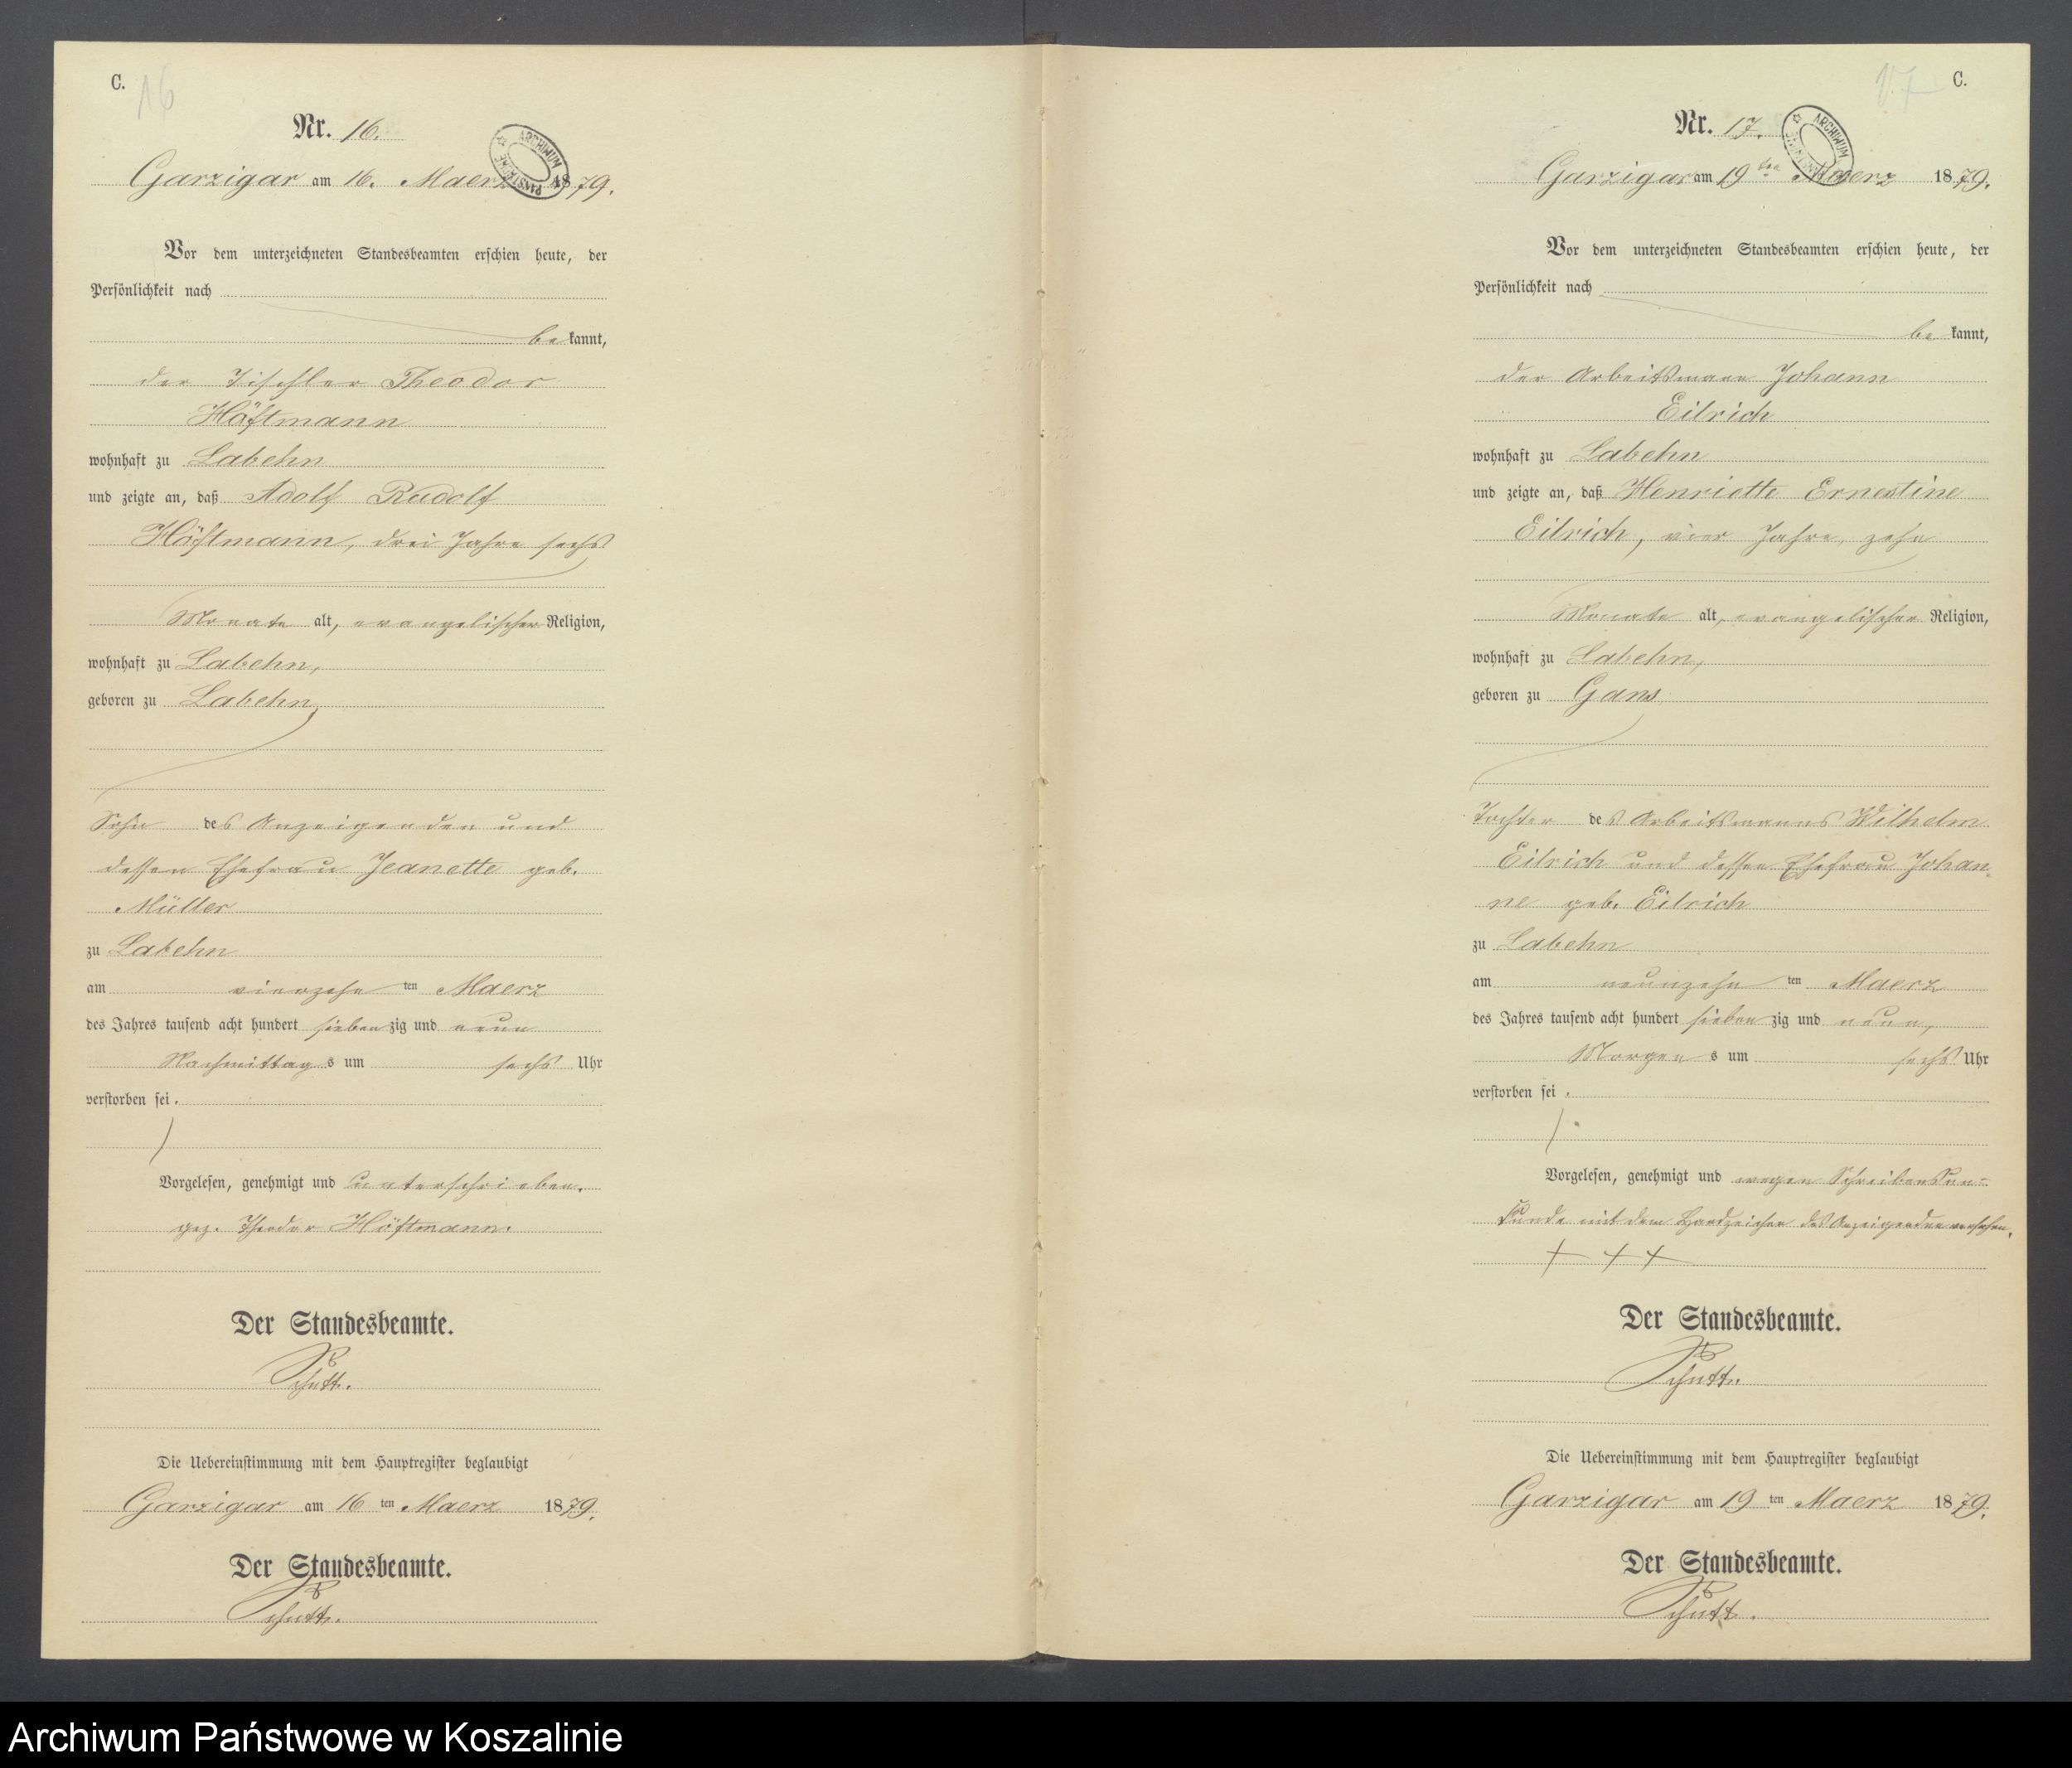 C.
16
Nr. 16.
ARCHIWUM PAŃSTWOWE
Garzigar am 16. Maerz 1879.
Vor dem unterzeichneten Standesbeamten erschien heute, der
Persönlichkeit nach
be kannt,
der Tischler Theodor
Höftmann
wohnhaft zu Labehn
und zeigte an, daß Adolf Rudolf
Höftmann, drei Jahre sechs
Monate alt, evangelischer Religion,
wohnhaft zu Labehn,
geboren zu Labehn,
Sohn des Anzeigenden und
dessen Ehefrau Jeanette geb.
Müller
zu Labehn
am vierzehn ten Maerz
des Jahres tausend acht hundert sieben zig und neun
Nachmittag s um sechs Uhr
verstorben sei.
Vorgelesen, genehmigt und unterschrieben.
gez. Theodor Höftmann.
Der Standesbeamte.
Schutt.
Die Uebereinstimmung mit dem Hauptregister beglaubigt
Garzigar am 16 ten Maerz 1879.
Der Standesbeamte.
Schutt.
17
C.
Nr. 17.
ARCHIWUM PAŃSTWOWE
Garzigar am 19 ten Maerz 1879.
Vor dem unterzeichneten Standesbeamten erschien heute, der
Persönlichkeit nach
be kannt,
der Arbeitsmann Johann
Eilrich
wohnhaft zu Labehn
und zeigte an, daß Henriette Ernestine
Eilrich, vier Jahre, zehn
Monate alt, evangelischer Religion,
wohnhaft zu Labehn,
geboren zu Gans
Tochter des Arbeitsmanns Wilhelm
Eilrich und dessen Ehefrau Johan
ne geb. Eilrich
zu Labehn
am neunzehn ten Maerz
des Jahres tausend acht hundert sieben zig und neun,
Morgen s um sechs Uhr
verstorben sei.
Vorgelesen, genehmigt und wegen Schreibensun=
kunde mit dem Handzeichen des Anzeigenden versehen.
+ + +
Der Standesbeamte.
Schutt.
Die Uebereinstimmung mit dem Hauptregister beglaubigt
Garzigar am 19 ten Maerz 1879.
Der Standesbeamte.
Schutt.
Archiwum Państwowe w Koszalinie